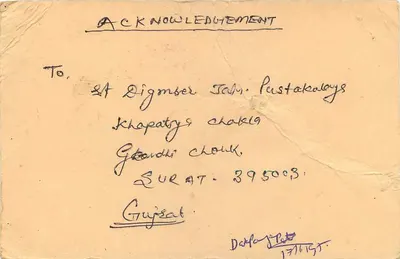 ACKNOWLEDHEMENT
To,
Digmber Jain Pustakalaya
Khapatiya Chakla
Gandhi Chouk.
SURAT - 395003.
Gujrat